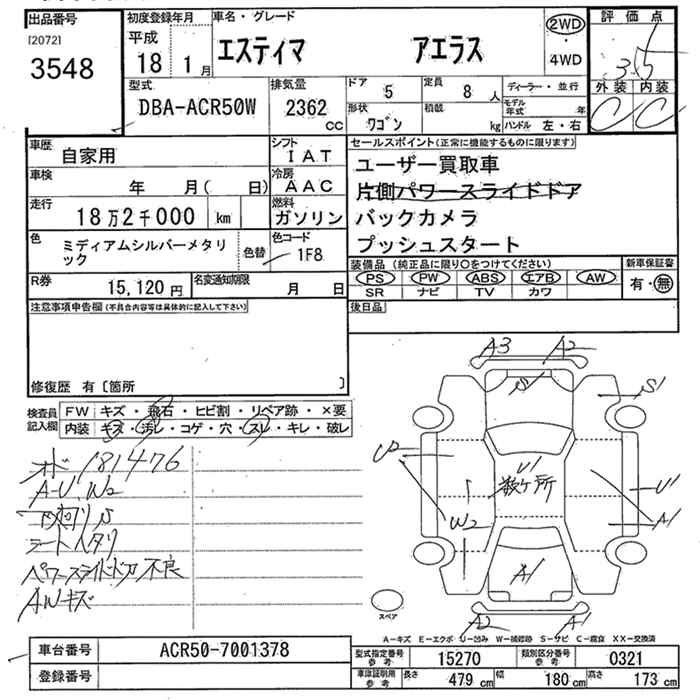 出品番号
[2072]
3548
初度登録年月
平成
18 1月
車名・グレード
エスティマ アエラス
2WD
・
4WD
評価点
3.5
外装 内装
C C
型式
DBA-ACR50W
排気量
2362
CC
ドア 5
定員 8人
形状 ワゴン
積載 kg
ディーラー・並行
モデル年式 年
ハンドル 左・右
車歴
自家用
シフト
IAT
車検
年 月( 日)
冷房
AAC
走行
18万2千000 km
燃料
ガソリン
色
ミディアムシルバーメタリック
色替
色コード
1F8
R券
15,120円
名変通知期限
月 日
セールスポイント(正常に機能するものに限ります)
ユーザー買取車
片側パワースライドドア
バックカメラ
プッシュスタート
装備品(純正品に限り○をつけてください)
PS PW ABS エアB AW
SR ナビ TV カワ
新車保証書
有・無
注意事項申告欄(不具合内容等は具体的に記入して下さい)
後日品
修復歴 有〔箇所 〕
検査員記入欄
FW キズ・飛石・ヒビ割・リペア跡・×要
内装 キズ・汚レ・コゲ・穴・スレ・キレ・破レ
オド 181476
A-U、W2
下廻りS
シートヘタリ
パワースライドドア不良
AWキズ
A3 A2
S
S1
U2
U1
数ヶ所
U1
A1
W2
A1
A2 A1
スペア
A-キズ E-エクボ U-凹み W-補修跡 S-サビ C-腐食 XX-交換済
車台番号 ACR50-7001378
登録番号
型式指定番号参考 15270
類別区分番号参考 0321
車庫証明用参考 長さ 479cm 幅 180cm 高さ 173cm